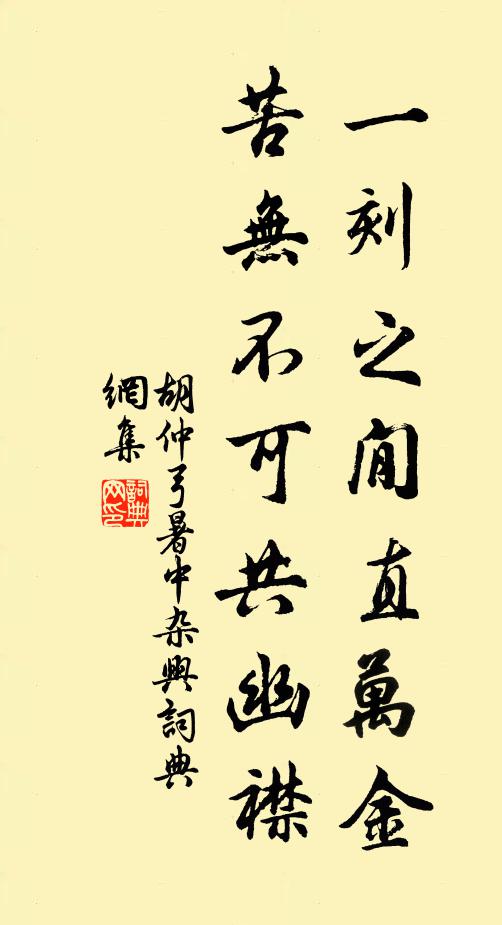 一刻之間直萬金
苦無不可共幽襟
胡仲弓暑中杂興詞典
網集
詞典网印